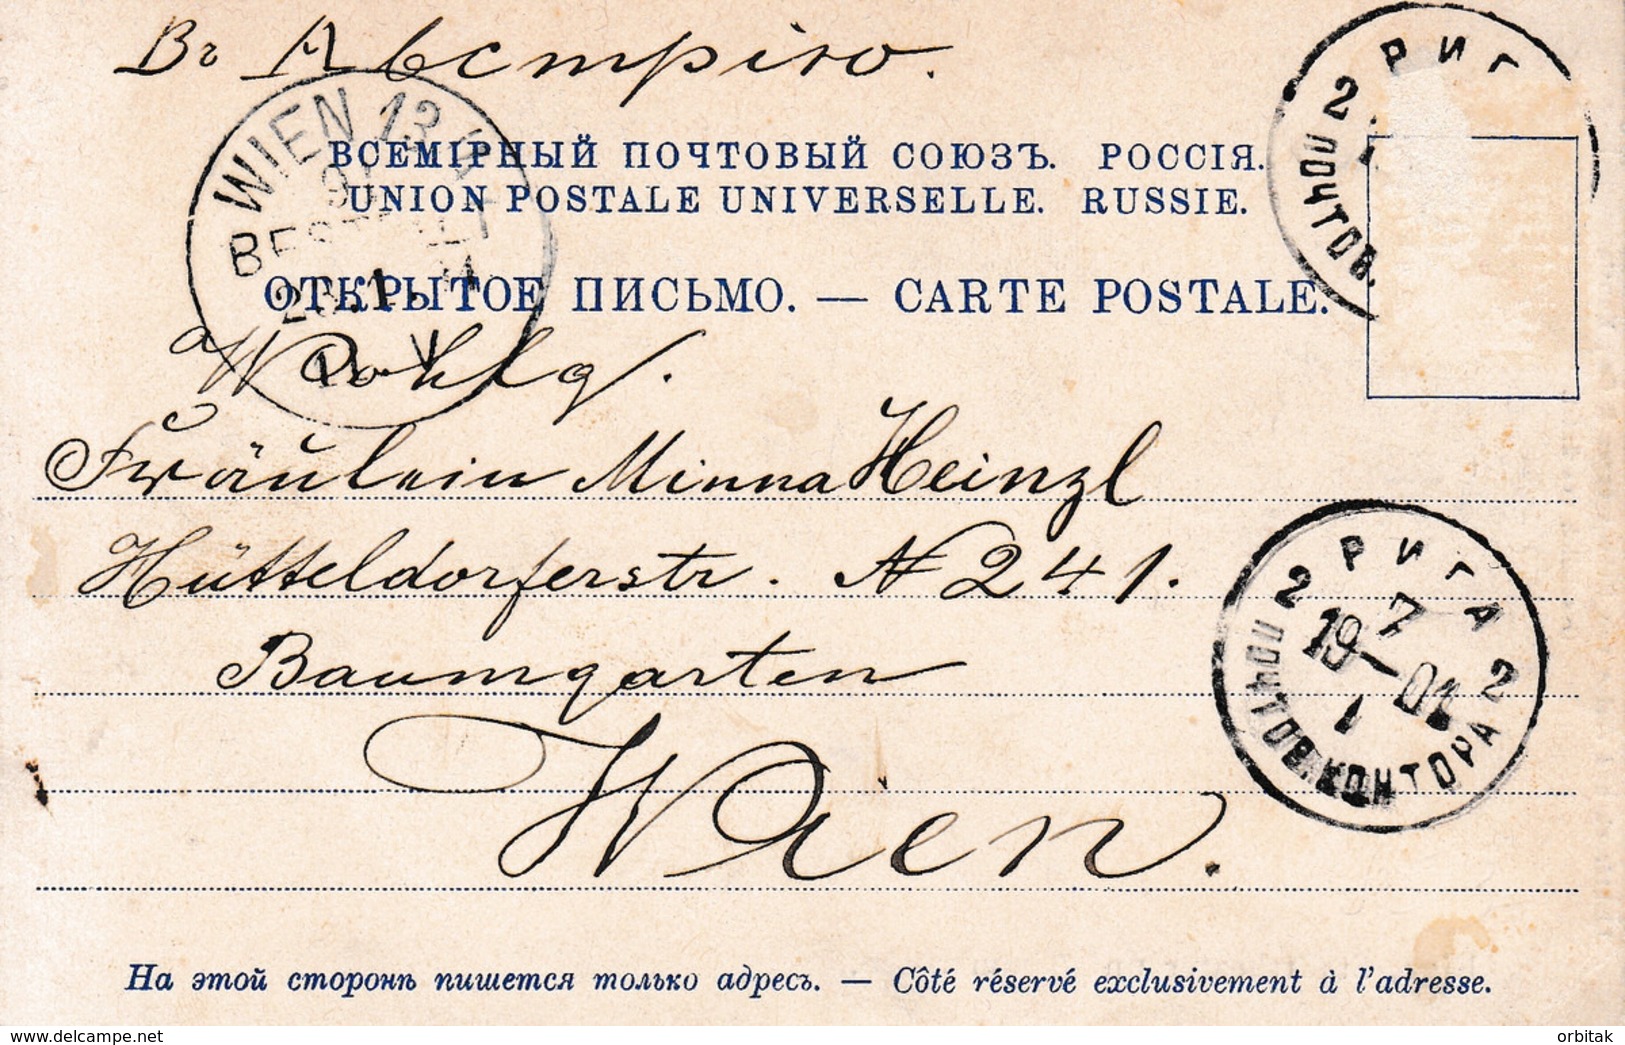 Въ Австрію.
ВСЕМІРНЫЙ ПОЧТОВЫЙ СОЮЗЪ. РОССІЯ.
UNION POSTALE UNIVERSELLE. RUSSIE.
ОТКРЫТОЕ ПИСЬМО. — CARTE POSTALE.
WIEN 13
РИГ
2
ПОЧТОВ.
Wohlg.
Fräulein Minna Heinzl
Hütteldorferstr. N 241.
Baumgarten
Wien.
РИГА
2 7 2
19—01
1
ПОЧТОВ. КОНТОРА
На этой сторонѣ пишется только адресъ. — Côté réservé exclusivement à l'adresse.
www.delcampe.net
orbitak